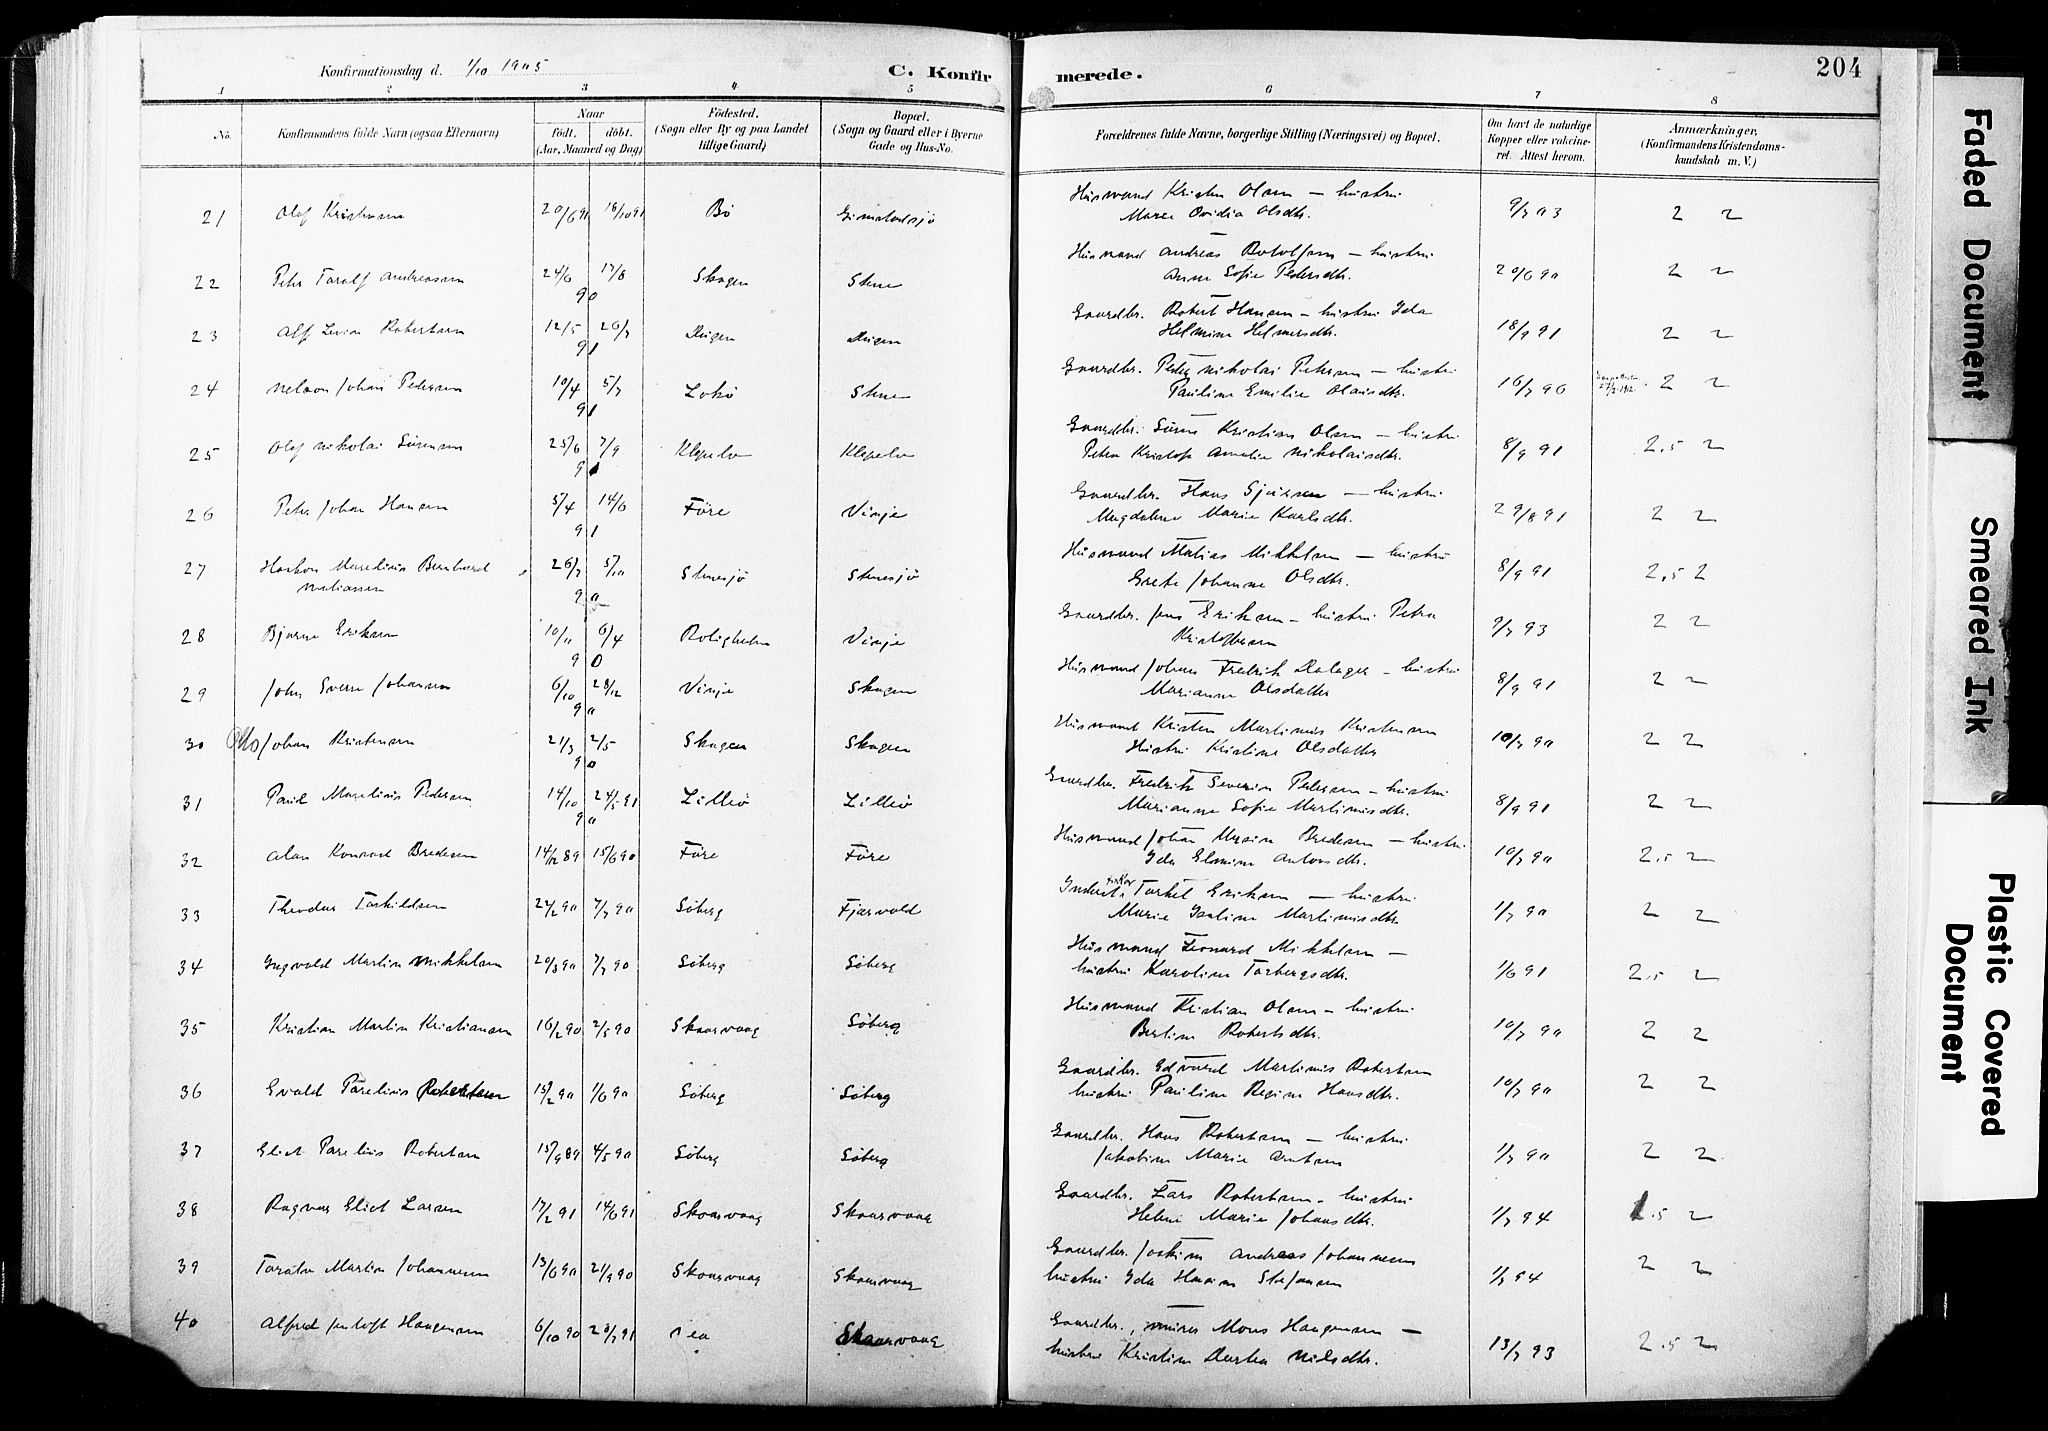 Konfirmationsdag d. 1/10 1905
C. Konfirmerede.
204
1 2 3 4 5 6 7 8
No.
Konfirmandens fulde Navn (ogsaa Efternavn)
Naar
født. døbt.
(Aar, Maaned og Dag)
Fødested.
(Sogn eller By og paa Landet
tillige Gaard)
Bopæl.
(Sogn og Gaard eller i Byerne
Gade og Hus-No.
Forældrenes fulde Navne, borgerlige Stilling (Næringsvei) og Bopæl.
Om havt de naturlige
Kopper eller vakcine-
ret. Attest herom.
Anmærkninger,
(Konfirmandens Kristendoms-
kundskab m. V.)
21 Olaf Kristensen 20/6 91 18/10 91 Bø Husmand Kristen Olsen – hustru
Maree Ovidia Olsdtr. 9/7 03 2 2
22 Peter Toralf Andreassen 24/6 17/8 90 Skagen Stene Husmand Andreas Rotolfsen – hustru
Anne Sofie Pedersdtr. 20/6 90 2 2
23 Alf Robertsen 12/5 26/7 91 Gaardbr. Robert Hansen – hustru Ida
Helmine Helmersdtr. 18/9 91 2 2
24 Nelson Johan Pedersen 10/4 5/7 91 Stene Gaardbr. Peder Nikolai Petersen – hustru
Pauline Emilie Olaisdtr. 16/7 96 2 2
25 Olaf Nikolai Sørensen 25/6 7/9 91 Klepelv Klepelv Gaardbr. Sører Kristian Olsen – hustru
Petra Amalie Nikolaisdtr. 8/9 91 2,5 2
26 Peter Johan Hansen 5/4 14/6 91 Føre Vinje Gaardbr. Hans – hustru
Magdalene Marie Karlsdtr. 29/8 91 2 2
27 Haakon Marelius Bernhard
Matiassen 26/7 5/10 90 Stenesjø Stenesjø Husmand Matias Mikkelsen – hustru
Grete Johanne Olsdtr. 8/9 91 2,5 2
28 Bjarne Eriksen 10/11 6/4 90 Roligheten Vinje Gaardbr. Jens Eriksen – hustru Petra
Kristoffersen 9/7 93 2 2
29 John Sverre Johansen 6/10 28/12 90 Vinje Skagen Husmand Johan Fredrik Dalager – hustru
Marianne Olsdatter 8/9 91 2 2
30 Otto Johan Kristensen 21/3 2/5 90 Skagen Skagen Husmand Kristen Martinius Kristensen
Hustru Kristine Olsdatter 10/7 90 2 2
31 Paul Marelius Pedersen 14/10 90 24/5 91 Lilleø Lilleø Gaardbr. Fredrik Severin Pedersen – hustru
Marianne Sofie Martinusdtr. 8/9 91 2 2
32 Konrad Bredesen 14/12 89 15/6 90 Føre Føre Husmand Johan Bredesen – hustru
Ida Elmine Antonsdtr. 10/7 90 2,5 2
33 Theodor Torkildsen 22/2 90 7/7 90 Søberg Fjærvold Inderst, Torkel Eriksen – hustru
Marie Martinusdtr 1/7 90 2 2
34 Ingvald Martin Mikkelsen 20/3 90 7/7 90 Søberg Søberg Husmand Leonard Mikkelsen –
hustru Karoline Torbergsdtr. 1/6 91 2,5 2
35 Kristian Martin Kristiansen 16/2 90 2/5 90 Skaarvaag Søberg Husmand Kristian Olsen – hustru
Berline Robertsdtr. 10/7 90 2 2
36 Evald Parelius Robertsen 15/2 90 1/6 90 Søberg Søberg Gaardbr. Edvard Martinus Robertsen
hustru Pauline Regine Hansdtr. 10/7 90 2 2
37 Eliot Parelius Robertsen 15/9 89 4/5 90 Søberg Søberg Gaardbr. Hans Robertsen – hustru
Jakobine Marie Arntsen 1/7 90 2 2
38 Ragnar Eliot Larsen 17/2 91 14/6 91 Skaarvaag Skaarvaag Gaardbr. Lars Robertsen – hustru
Helene Marie Johansdtr. 1/7 94 1.5 2
39 Martin Johannesen 13/6 90 21/9 90 Skaarvaag Skaarvaag Gaardbr. Joakim Andreas Johannesen
hustru Ida Stefansen 1/7 94 2 2
40 Alfred Haugensen 6/10 90 23/7 91 Skaarvaag Gaardbr., Mons Haugensen –
hustru Kristine Dortea Nilsdtr. 13/7 93 2.5 2
Faded Document
Smeared Ink
Plastic Covered
Document